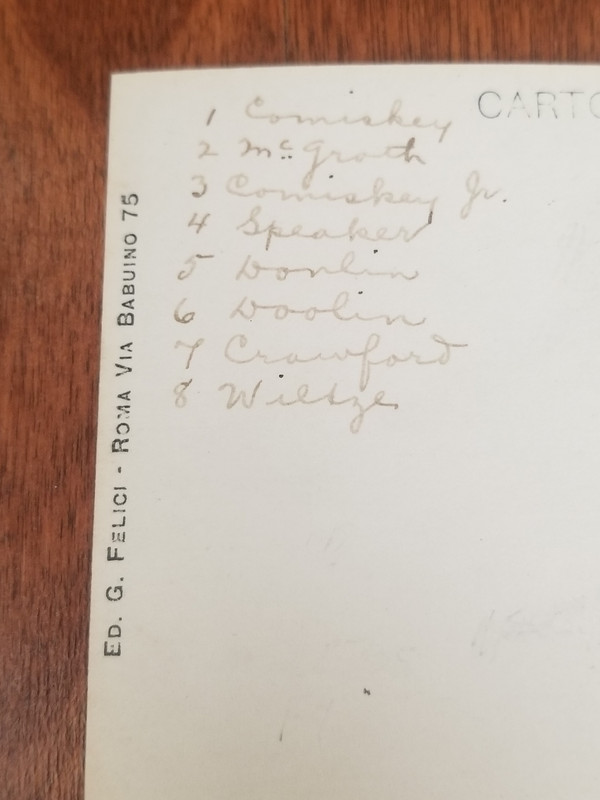 CARTO
1 Comiskey
2 McGrath
3 Comiskey Jr.
4 Speaker
5 Donlin
6 Doolin
7 Crawford
8 Wiltze
ED. G. FELICI - ROMA VIA BABUINO 75